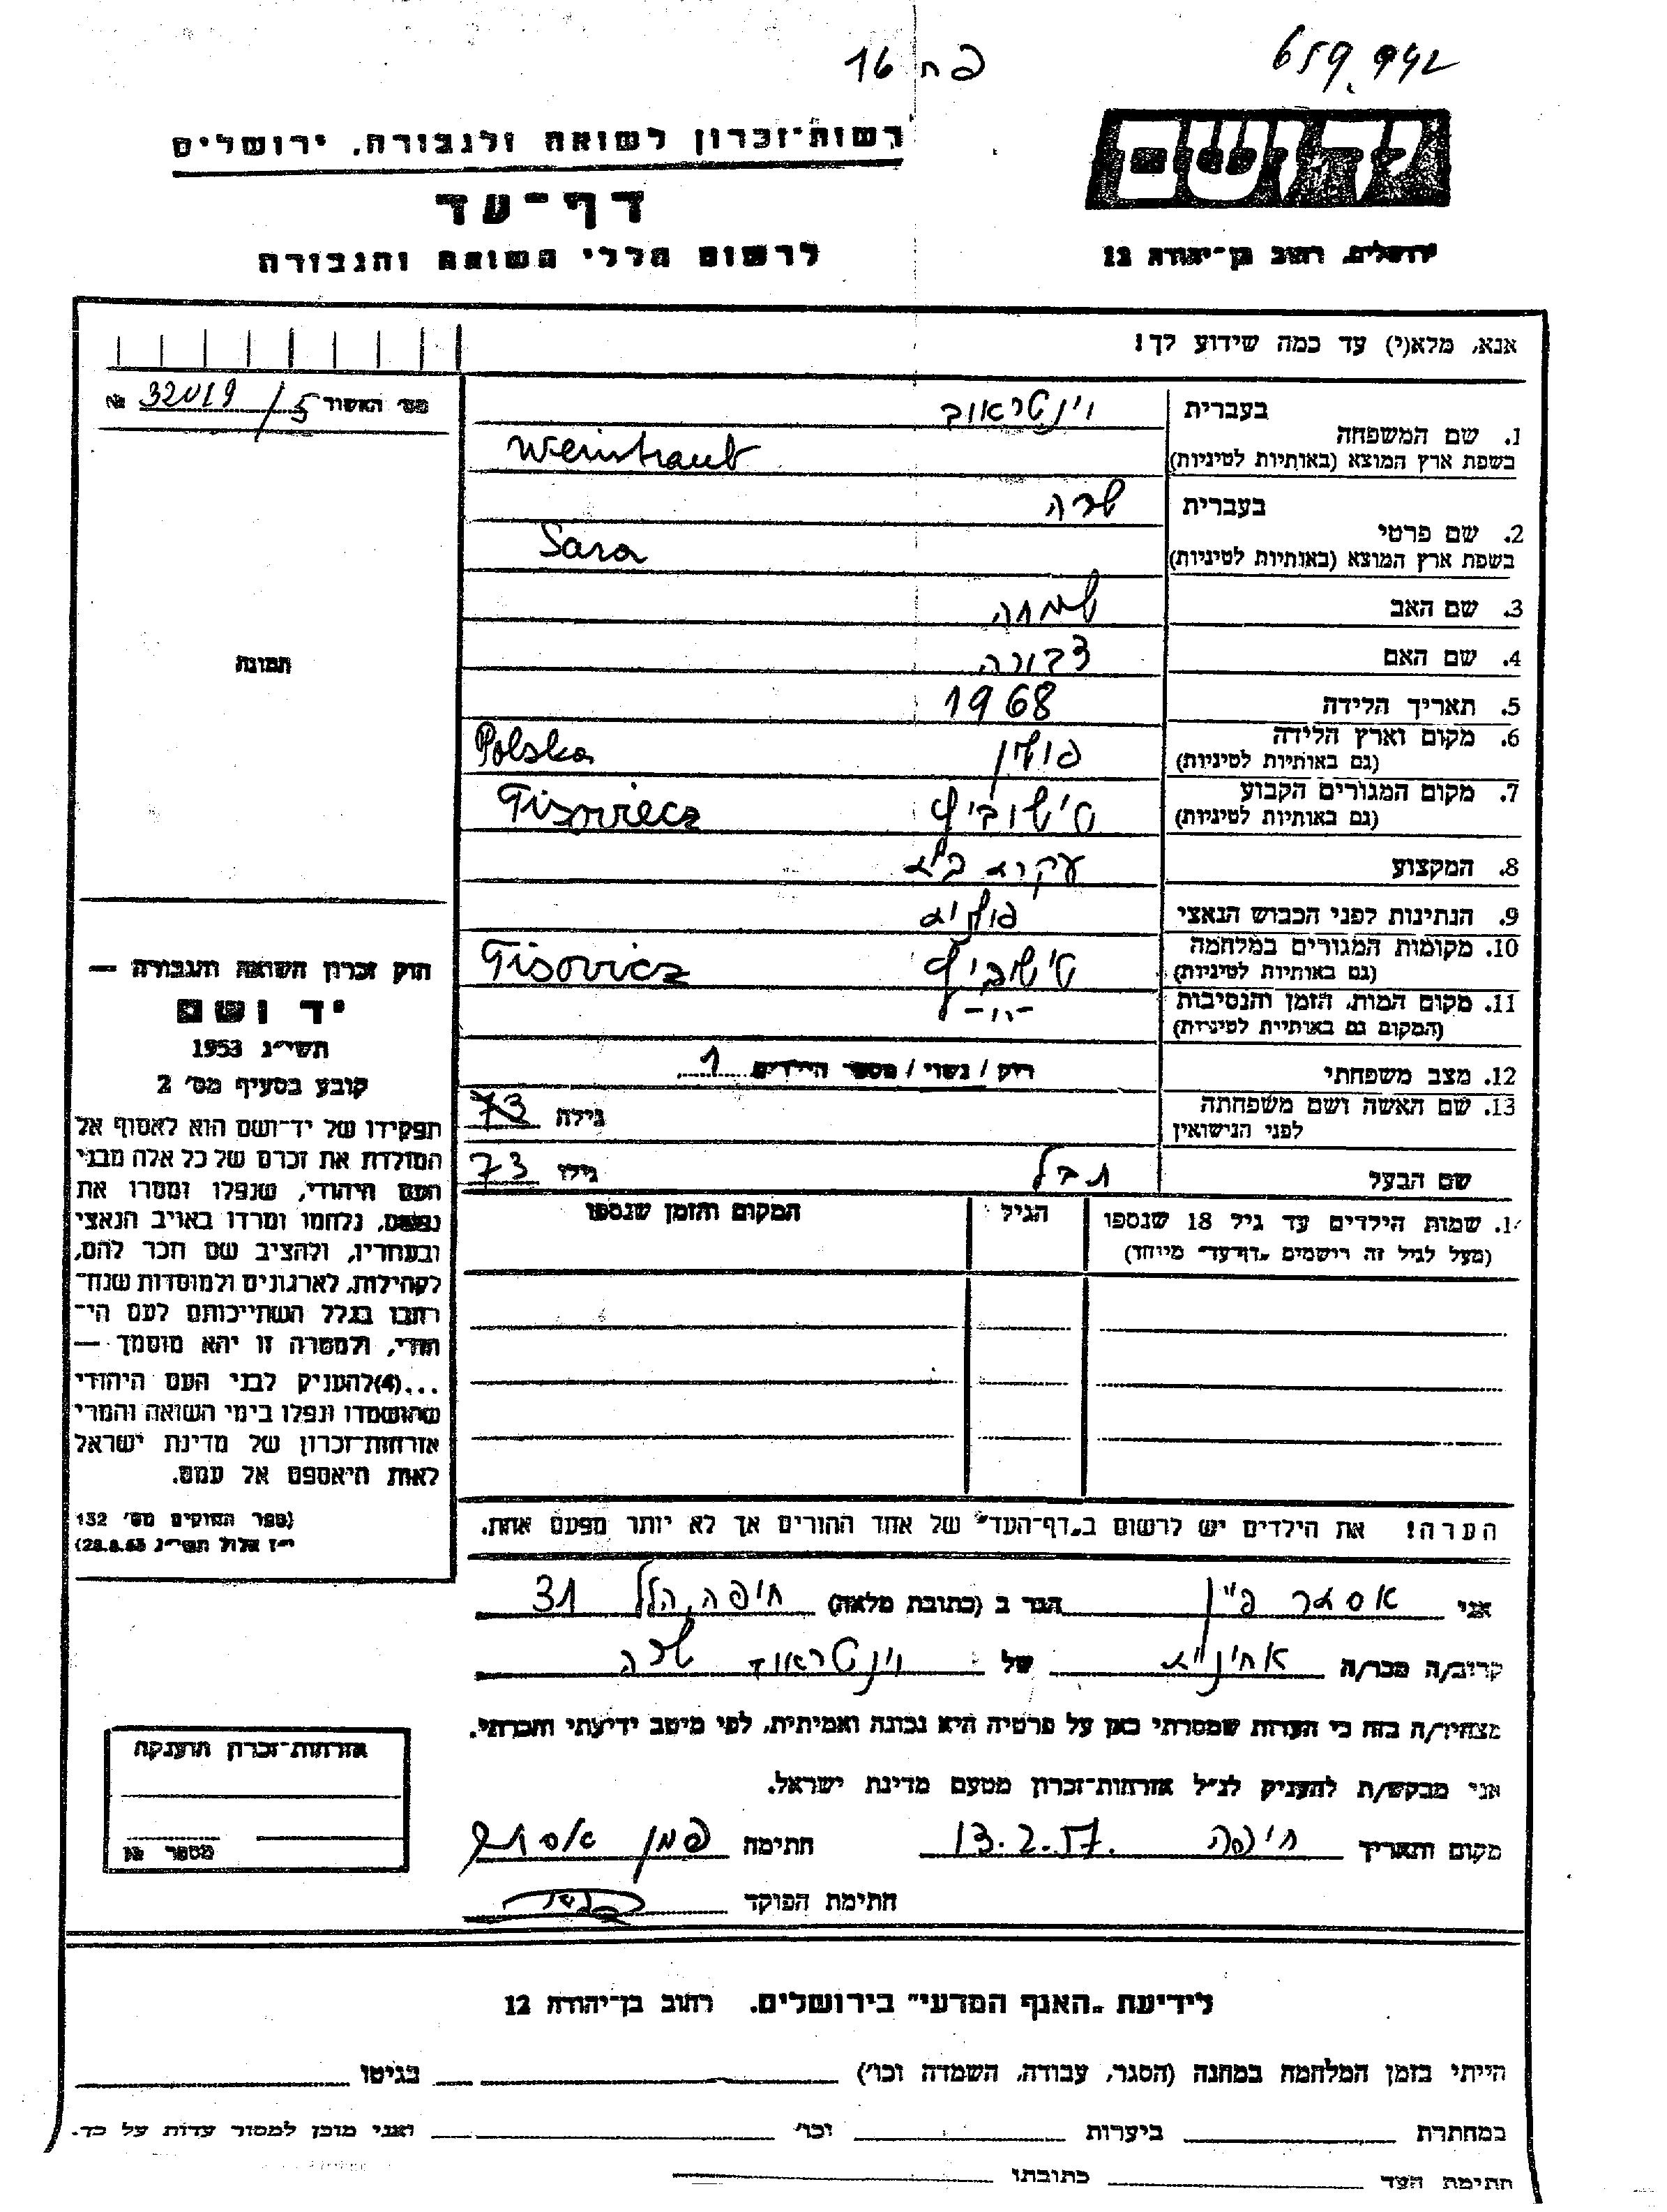 פח 16
659,942
רשות־זכרון לשואה ולגבורה, ירושלים
יד ושם
דף־עד
לרשום חללי השואה והגבורה
ירושלים, רחוב בן־יהודה 12
אנא, מלא(י) עד כמה שידוע לך!
מס' האשור 32019/5 №
1. שם המשפחה בעברית וינטראוב
בשפת ארץ המוצא (באותיות לטיניות) Weintraub
2. שם פרטי בעברית שרה
בשפת ארץ המוצא (באותיות לטיניות) Sara
3. שם האב שמחה
4. שם האם דבורה
תמונה
5. תאריך הלידה 1968
6. מקום וארץ הלידה פולין Polska
(גם באותיות לטיניות)
7. מקום המגורים הקבוע טישוביץ Tisoviecz
(גם באותיות לטיניות)
8. המקצוע עקרת בית
9. הנתינות לפני הכבוש הנאצי פולנית
10. מקומות המגורים במלחמה טישוביץ Tisovicz
(גם באותיות לטיניות)
11. מקום המות, הזמן והנסיבות -"-
(המקום גם באותיות לטיניות)
12. מצב משפחתי רווק / נשוי / מספר הילדים 1
13. שם האשה ושם משפחתה גילה 73
לפני הנישואין
שם הבעל גילו 73
14. שמות הילדים עד גיל 18 שנספו הגיל המקום והזמן שנספו
(מעל לגיל זה רושמים "דף־עד" מיוחד)
חוק זכרון השואה והגבורה —
יד ושם
תשי״ג 1953
קובע בסעיף מס׳ 2
תפקידו של יד־ושם הוא לאסוף אל
המולדת את זכרם של כל אלה מבני
העם היהודי, שנפלו ומסרו את
נפשם, נלחמו ומרדו באויב הנאצי
ובעוזריו, ולהציב שם וזכר להם,
לקהילות, לארגונים ולמוסדות שנח־
רבו בגלל השתייכותם לעם הי־
הודי, ולמטרה זו יהא מוסמך —
...(4) להעניק לבני העם היהודי
שהושמדו ונפלו בימי השואה והמרי
אזרחות־זכרון של מדינת ישראל
לאות היאספם אל עמם.
(ספר החוקים מס׳ 132
י״ז אלול תשי״ג 28.8.53)
הערה! את הילדים יש לרשום ב„דף־העד" של אחד ההורים אך לא יותר מפעם אחת.
אני אסתר הגר ב (כתובת מלאה) חיפה, הלל 31
קרוב/ה מכר/ה אחינית של וינטראוב שרה
מצהיר/ה בזה כי העדות שמסרתי כאן על פרטיה היא נכונה ואמיתית, לפי מיטב ידיעתי והכרתי.
אני מבקש/ת להעניק לנ״ל אזרחות־זכרון מטעם מדינת ישראל.
מקום ותאריך חיפה 13.2.57 חתימה אסתר
חתימת הפוקד
אזרחות־זכרון הוענקה
מספר №
לידיעת „האגף המדעי" בירושלים. רחוב בן־יהודה 12
הייתי בזמן המלחמה במחנה (הסגר, עבודה, השמדה וכו׳) בגיטו
במחתרת ביערות וכו׳ ואני מוכן למסור עדות על כך.
חתימת העד כתובתו